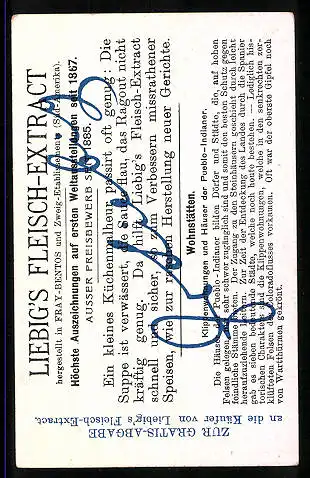 LIEBIG'S FLEISCH-EXTRACT
hergestellt in FRAY-BENTOS und Zweig-Etablissements (Süd-Amerika).
Höchste Auszeichnungen auf ersten Weltausstellungen seit 1867.
AUSSER PREISBEWERB SEIT 1885.
Ein kleines Küchenmalheur passirt oft genug: Die
Suppe ist verwässert, die Sauce flau, das Ragout nicht
kräftig genug. Da hilft Liebig's Fleisch-Extract
schnell und sicher, wie zum Verbessern missrathener
Speisen, wie zur raschen Herstellung neuer Gerichte.
Wohnstätten.
Klippenwohnungen und Häuser der Pueblo-Indianer.
Die Häuser der Pueblo-Indianer bilden Dörfer und Städte, die, auf hohen
Felsen gelegen, nur sehr schwer zugänglich sind und somit den besten Schutz gegen
feindliche Stämme bieten. Der Zugang zu den Steinhäusern geschieht durch leicht
heraufzuziehende Leitern. Zur Zeit der Entdeckung des Landes durch die Spanier
gab es siebzig bedeutende Städte, welche noch heute bestehen. — Lediglich his-
torischen Charakters sind die Klippenwohnungen, welche in den senkrechten zer-
klüfteten Felsen des Coloradoflusses vorkamen. Oft war der oberste Gipfel noch
von Wartthürmen gekrönt.
ZUR GRATIS-ABGABE
an die Käufer von Liebig's Fleisch-Extract.